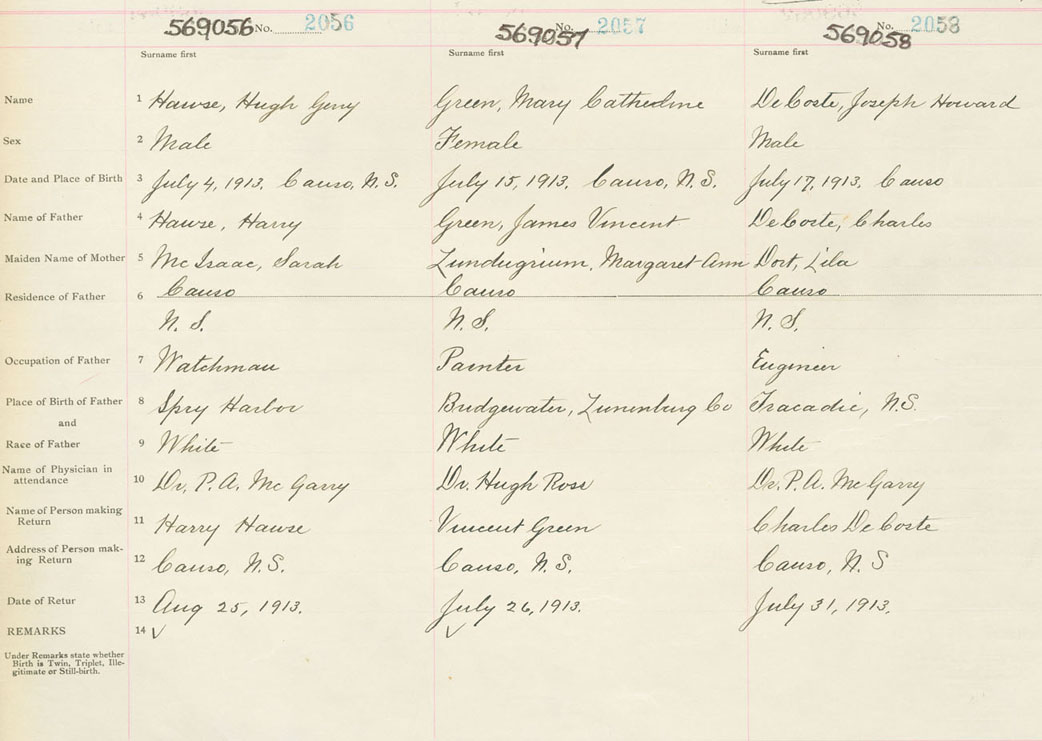 569056 No. 2056 569057 No. 2057 569058 No. 2058
Surname first Surname first Surname first
Name 1 Hawse, Hugh Green, Mary Cathedine DeCoste, Joseph Howard
Sex 2 Male Female Male
Date and Place of Birth 3 July 4, 1913. Canso, N.S. July 15, 1913. Canso, N.S. July 17, 1913. Canso
Name of Father 4 Hawse, Harry Green, James Vincent DeCoste, Charles
Maiden Name of Mother 5 McIsaac, Sarah Margaret Ann Dort, Lila
Residence of Father 6 Canso Canso Canso
N.S. N.S. N.S.
Occupation of Father 7 Watchman Painter Engineer
Place of Birth of Father 8 Spry Harbor Bridgewater, Lunenburg Co Tracadie, N.S.
and
Race of Father 9 White White White
Name of Physician in attendance 10 Dr. P.A. McGarry Dr. Hugh Ross Dr. P.A. McGarry
Name of Person making Return 11 Harry Hawse Vincent Green Charles DeCoste
Address of Person mak-ing Return 12 Canso, N.S. Canso, N.S. Canso, N.S
Date of Retur 13 Aug 25, 1913. July 26, 1913. July 31, 1913.
REMARKS 14 √ √
Under Remarks state whether
Birth is Twin, Triplet, Ille-
gitimate or Still-birth.